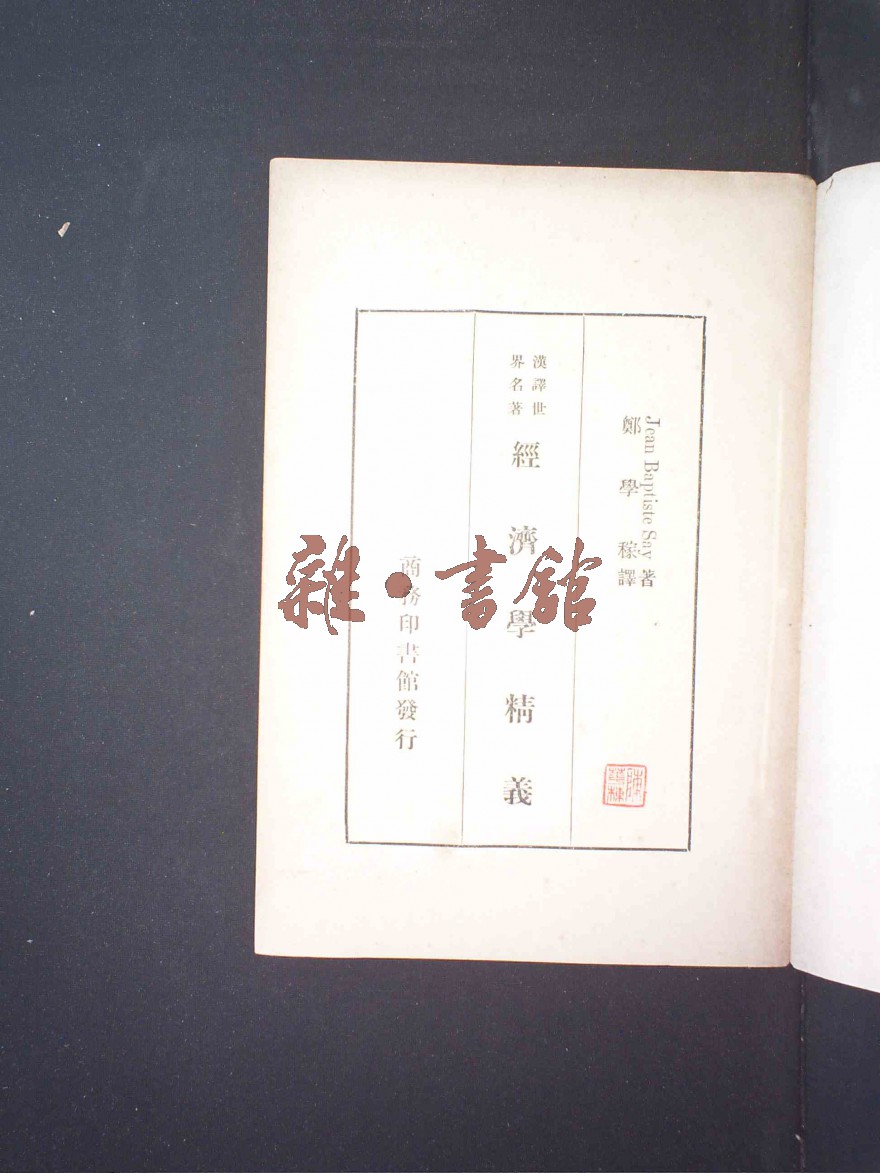 Jean Baptiste Say 著
鄭學稼譯
漢譯世
界名著
經濟學精義
商務印書館發行
雜·書館